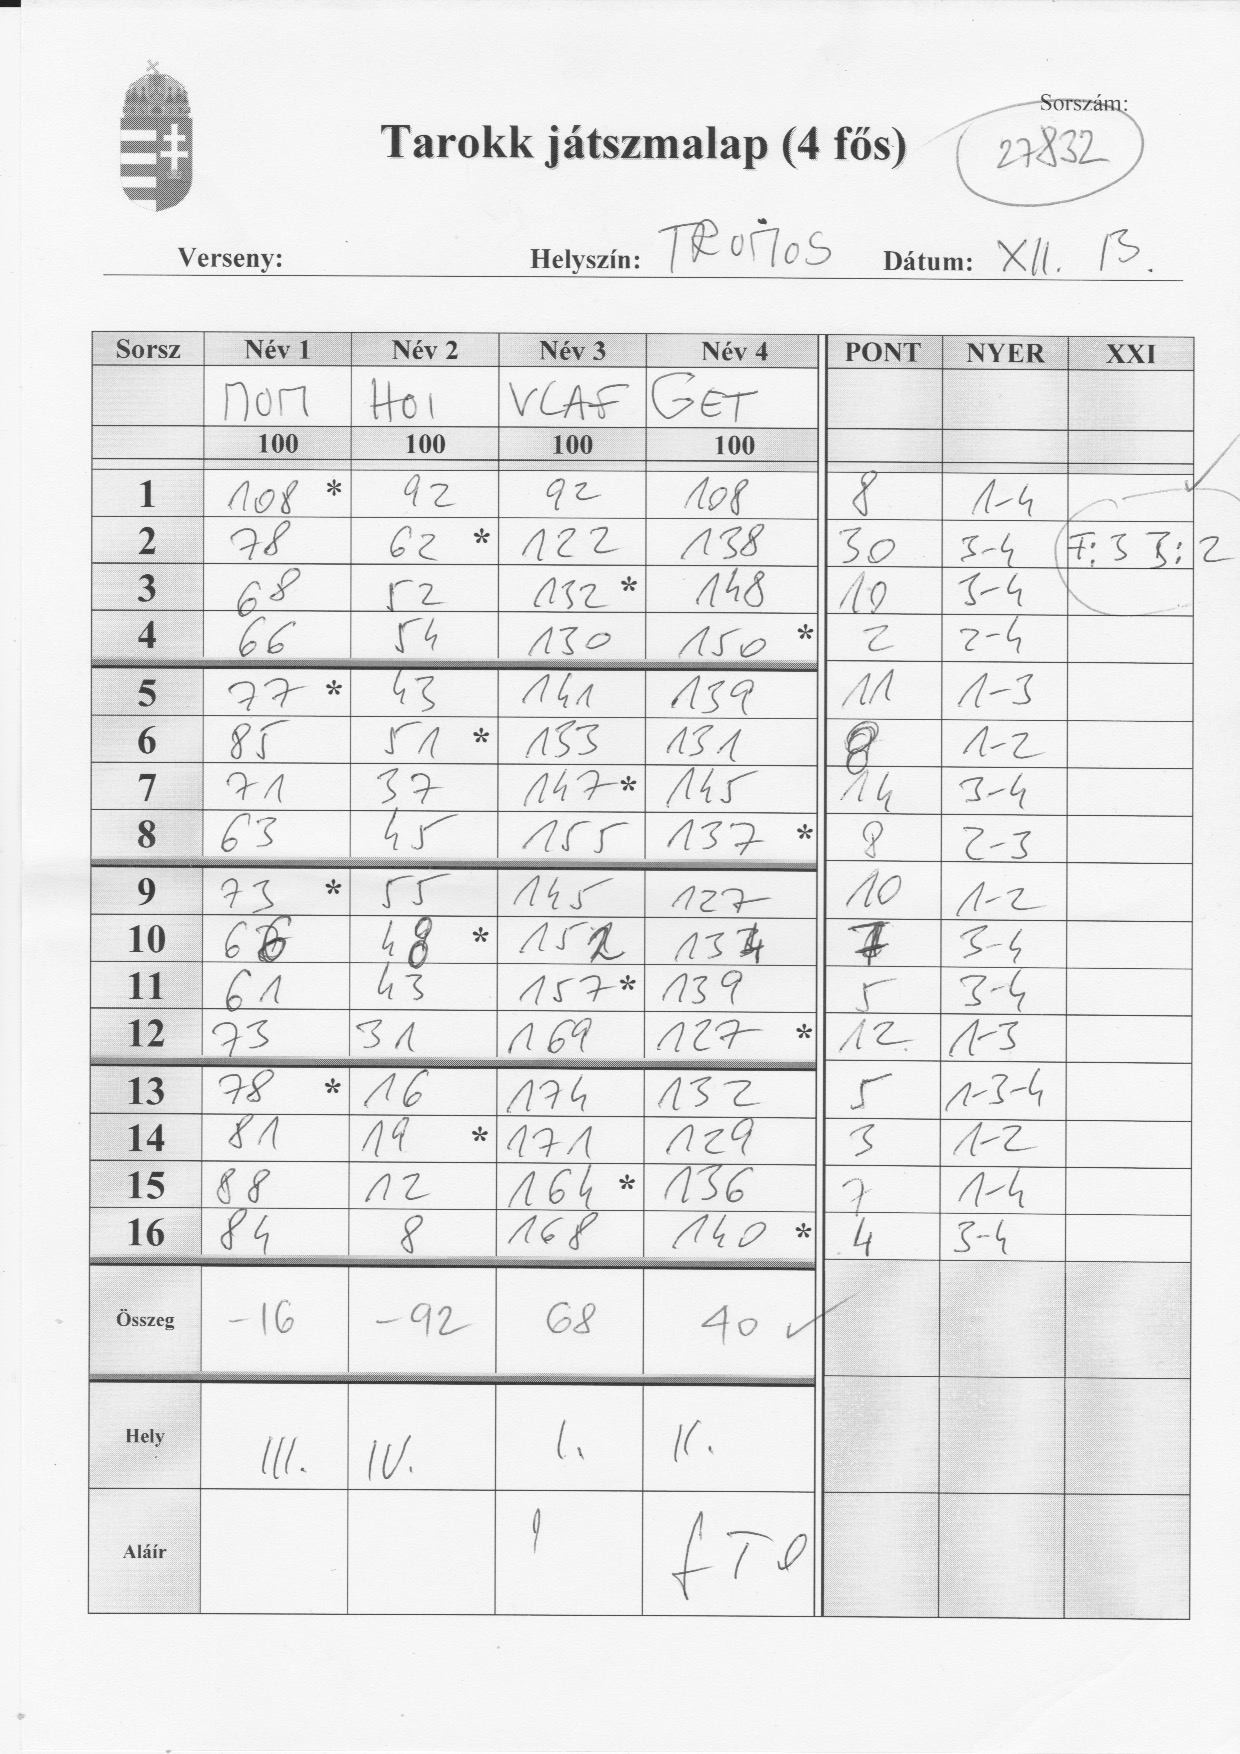 Sorszám:
Tarokk játszmalap (4 fős)
27832
Verseny: Helyszín: Dátum: XII. 13.
Sorsz Név 1 Név 2 Név 3 Név 4 PONT NYER XXI
MOM HOI VLAF GET
100 100 100 100
1 108 * 92 92 108 8 1-4
2 78 62 * 122 138 30 3-4 F: 3 3: 2
3 68 52 132 * 148 10 3-4
4 66 54 130 150 * 2 2-4
5 77 * 43 141 139 11 1-3
6 85 51 * 133 131 8 1-2
7 71 37 147 * 145 14 3-4
8 63 45 155 137 * 8 2-3
9 73 * 55 145 127 10 1-2
10 66 48 * 152 134 7 3-4
11 61 43 157 * 139 5 3-4
12 73 31 169 127 * 12 1-3
13 78 * 16 174 132 5 1-3-4
14 81 19 * 171 129 3 1-2
15 88 12 164 * 136 7 1-4
16 84 8 168 140 * 4 3-4
Összeg -16 -92 68 40
Hely III. IV. I. II.
Aláír